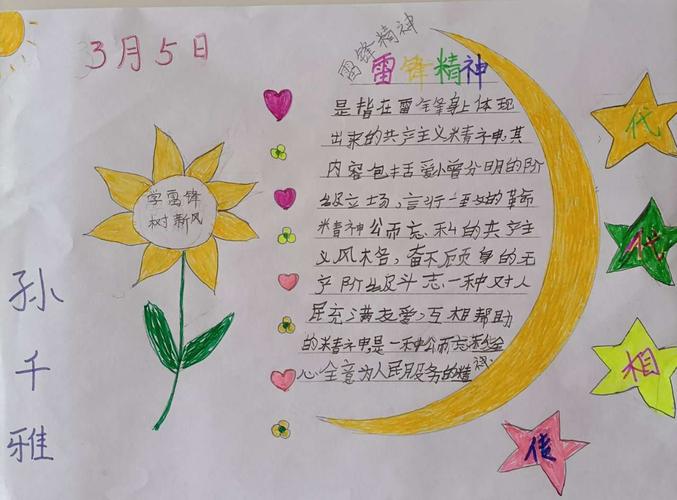 3月5日
雷锋精神
雷锋精神
是指在雷锋身上体现
出来的共产主义精神其
内容包括爱憎分明的阶
级立场,言行一致的革命
精神公而忘私的共产主
义风格,奋不顾身的无
产阶级斗志一种对人
民充满友爱,互相帮助
的精神是一种公而忘私全
心全意为人民服务的精神
学雷锋
树新风
孙千雅
代
代
相
传